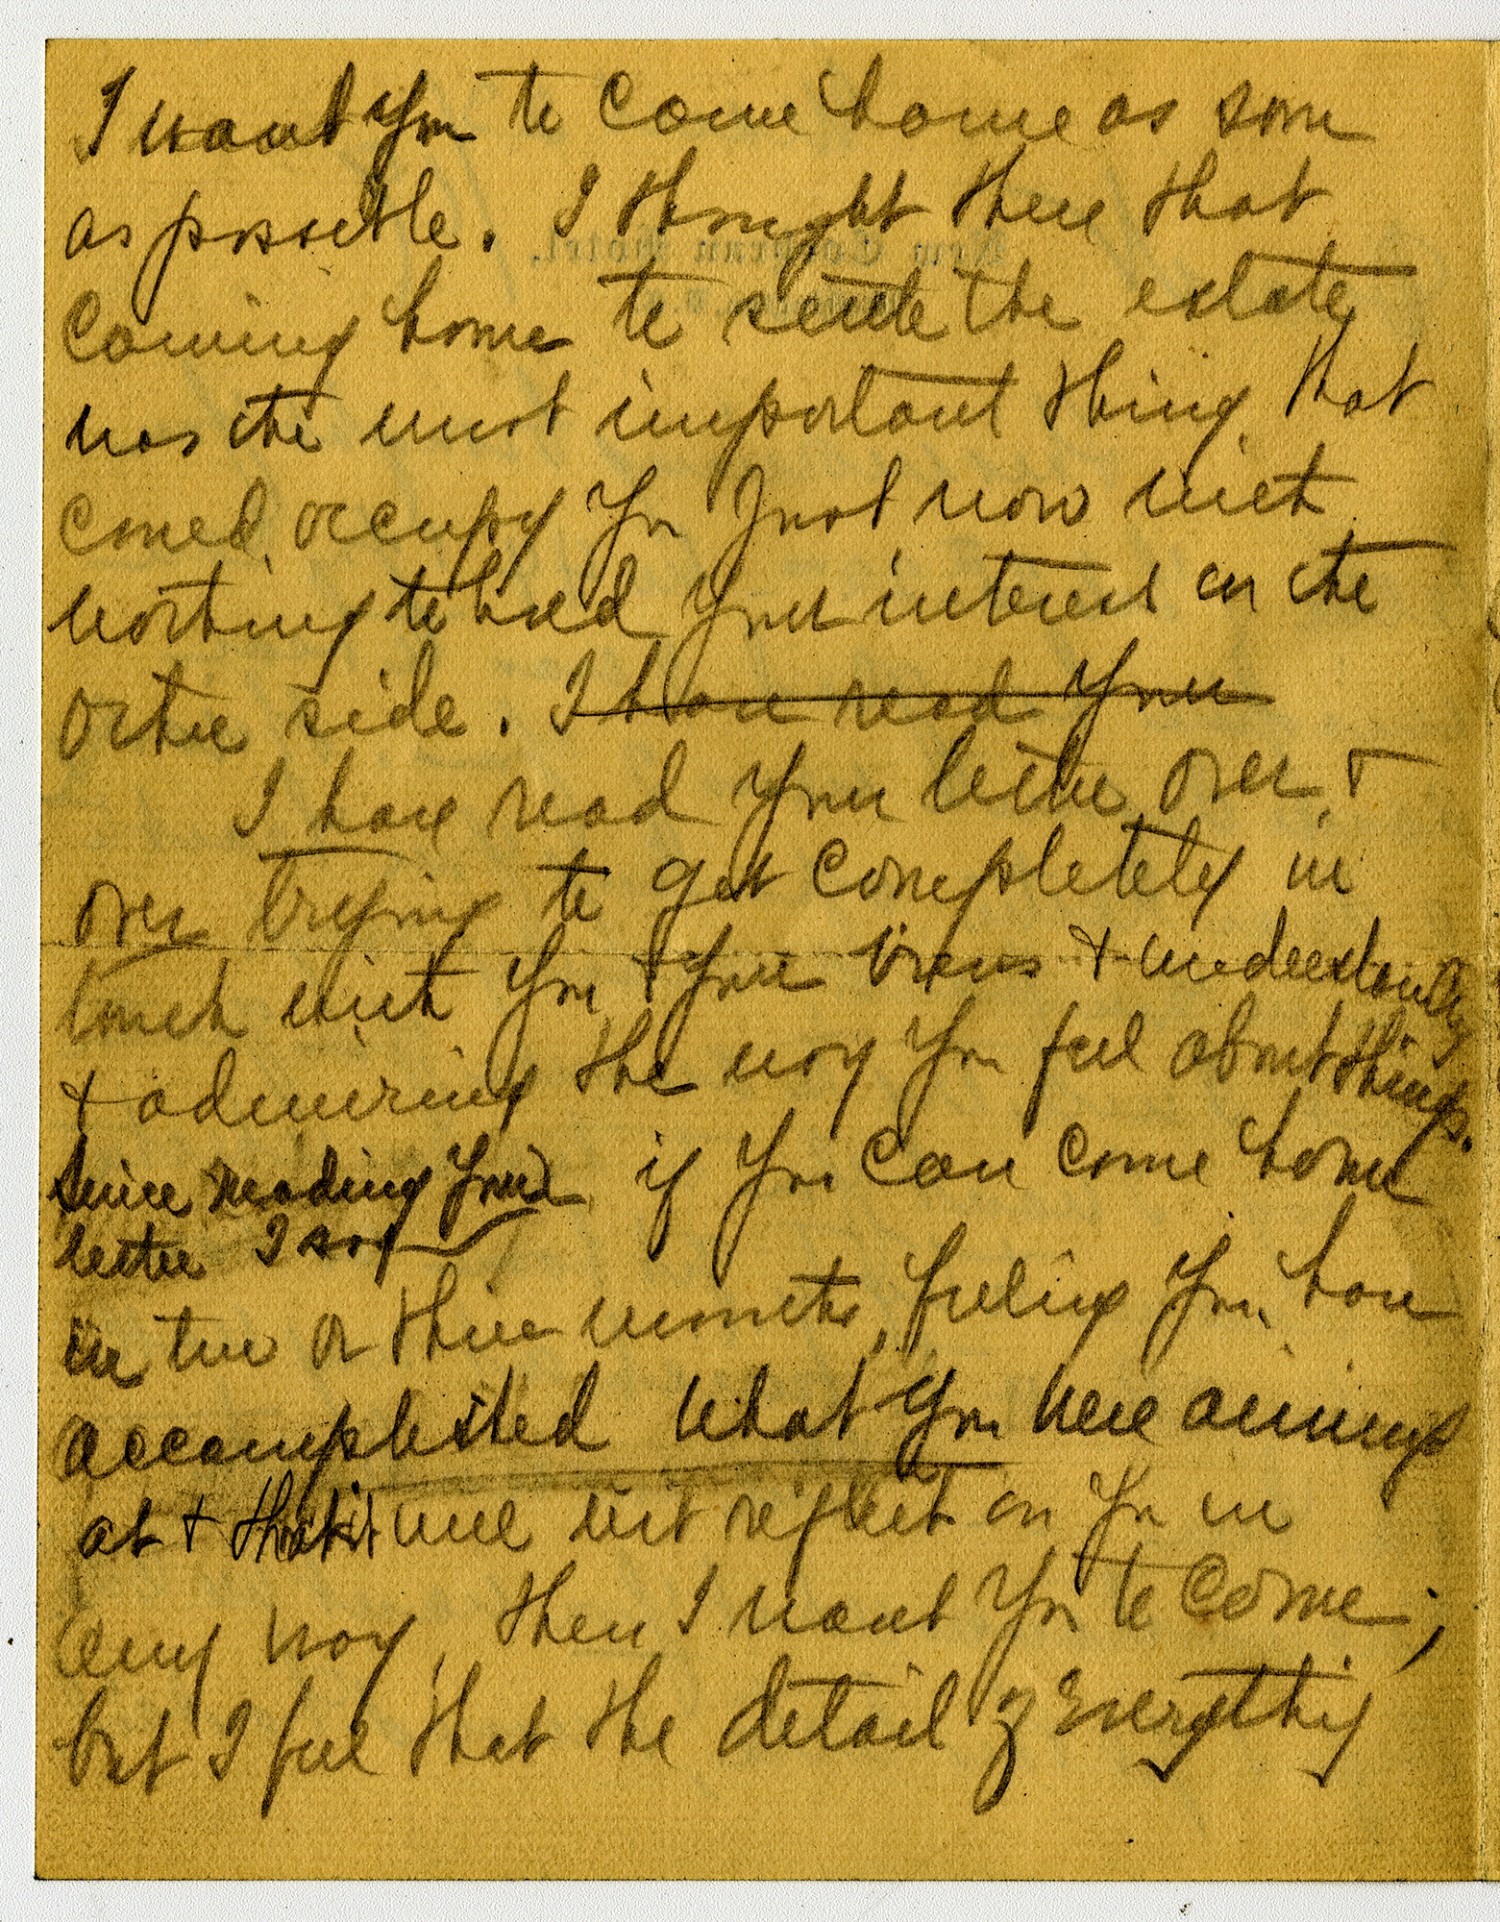 I want you to come home as soon
as possible. I thought there that
coming home to settle the estate
was the most important thing that
could occupy you just now with
nothing to hold your interest on the
other side. I have read your
I have read your letter over &
over trying to get completely in
touch with you & your views & understanding
& admiring the way you feel about things.
Since reading your
letter I say if you can come home
in two or three months, feeling you have
accomplished what you were aiming
at & that it will not reflect on you in
any way, then I want you to come;
but I feel that the detail of everything
New Cochran Hotel,